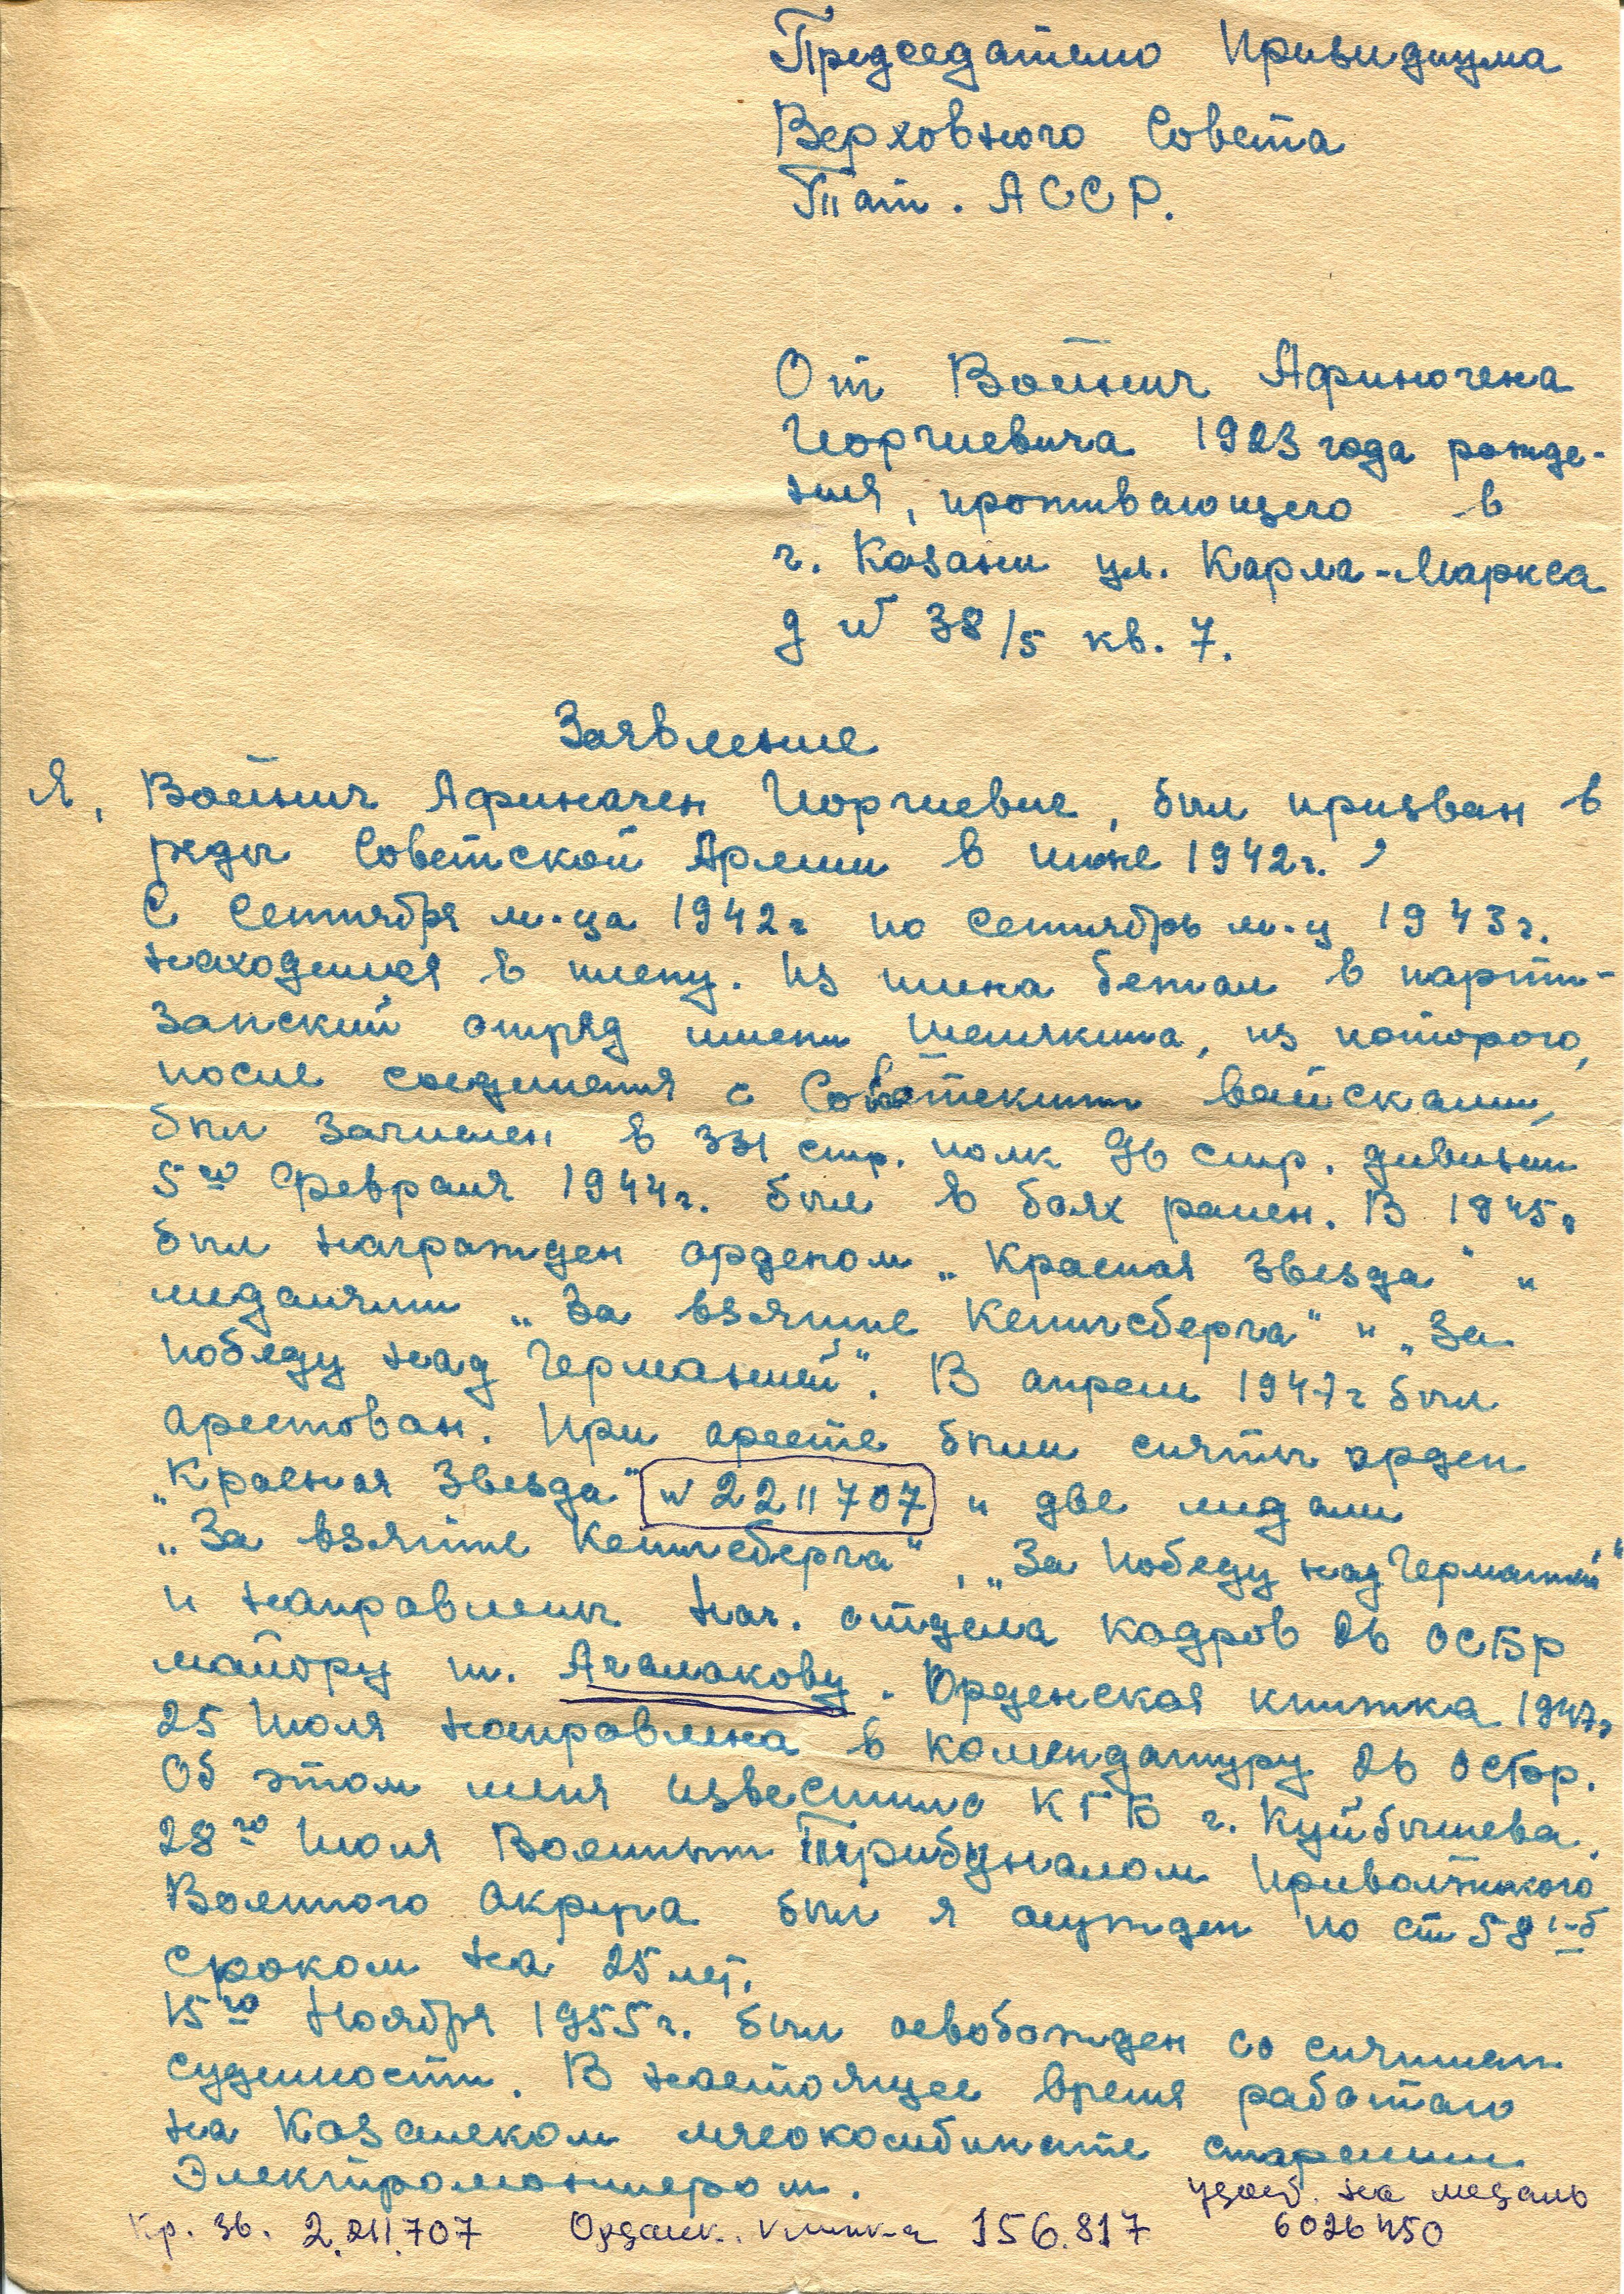 Председателю Призидиума
Верховного Совета
Тат. АССР.
От Войнич Афиногена
Иоргиевича 1923 года рожде-
ния, проживающего в
г. Казани ул. Карла-Маркса
д № 38/5 кв. 7.
Заявление
Я, Войнич Афиноген Иоргиевич, был призван в
ряды Советской Армии в июне 1942г.
С Сентября м-ца 1942г по Сентябрь м-ц 1943г.
находился в плену. Из плена бежал в парти-
занский отряд имени Шемякина, из которого,
после соединения с Советскими войсками,
был зачислен в 331 стр. полк 96 стр. дивизии
5го Февраля 1944г. был в боях ранен. В 1945г
был награжден орденом „Красная Звезда" и
медалями „За взятие Кенигсберга" и „За
победу над Германией". В апреле 1947г был
арестован. При аресте были сняты орден
„Красная Звезда" № 2211707 и две медали
„За взятие Кенигсберга", „За победу над Германией"
и направлены нач. отдела кадров 26 ОСБр
майору т. Агалакову. Орденская книжка 1947г
25 Июля направлена в комендатуру 26 ОСБр.
Об этом меня известило КГБ г. Куйбышева.
28го Июля Военным Трибуналом Приволжского
Военного Округа был я осужден по ст 58 1-б
сроком на 25 лет.
15го Ноября 1955г. был освобожден со снятием
судимости. В настоящее время работаю
на Казанском мясокомбинате старшим
Электромонтером.
удост. на медаль
Кр. Зв. 2.211.707 Орденск. книжк-а 156.817 6026450